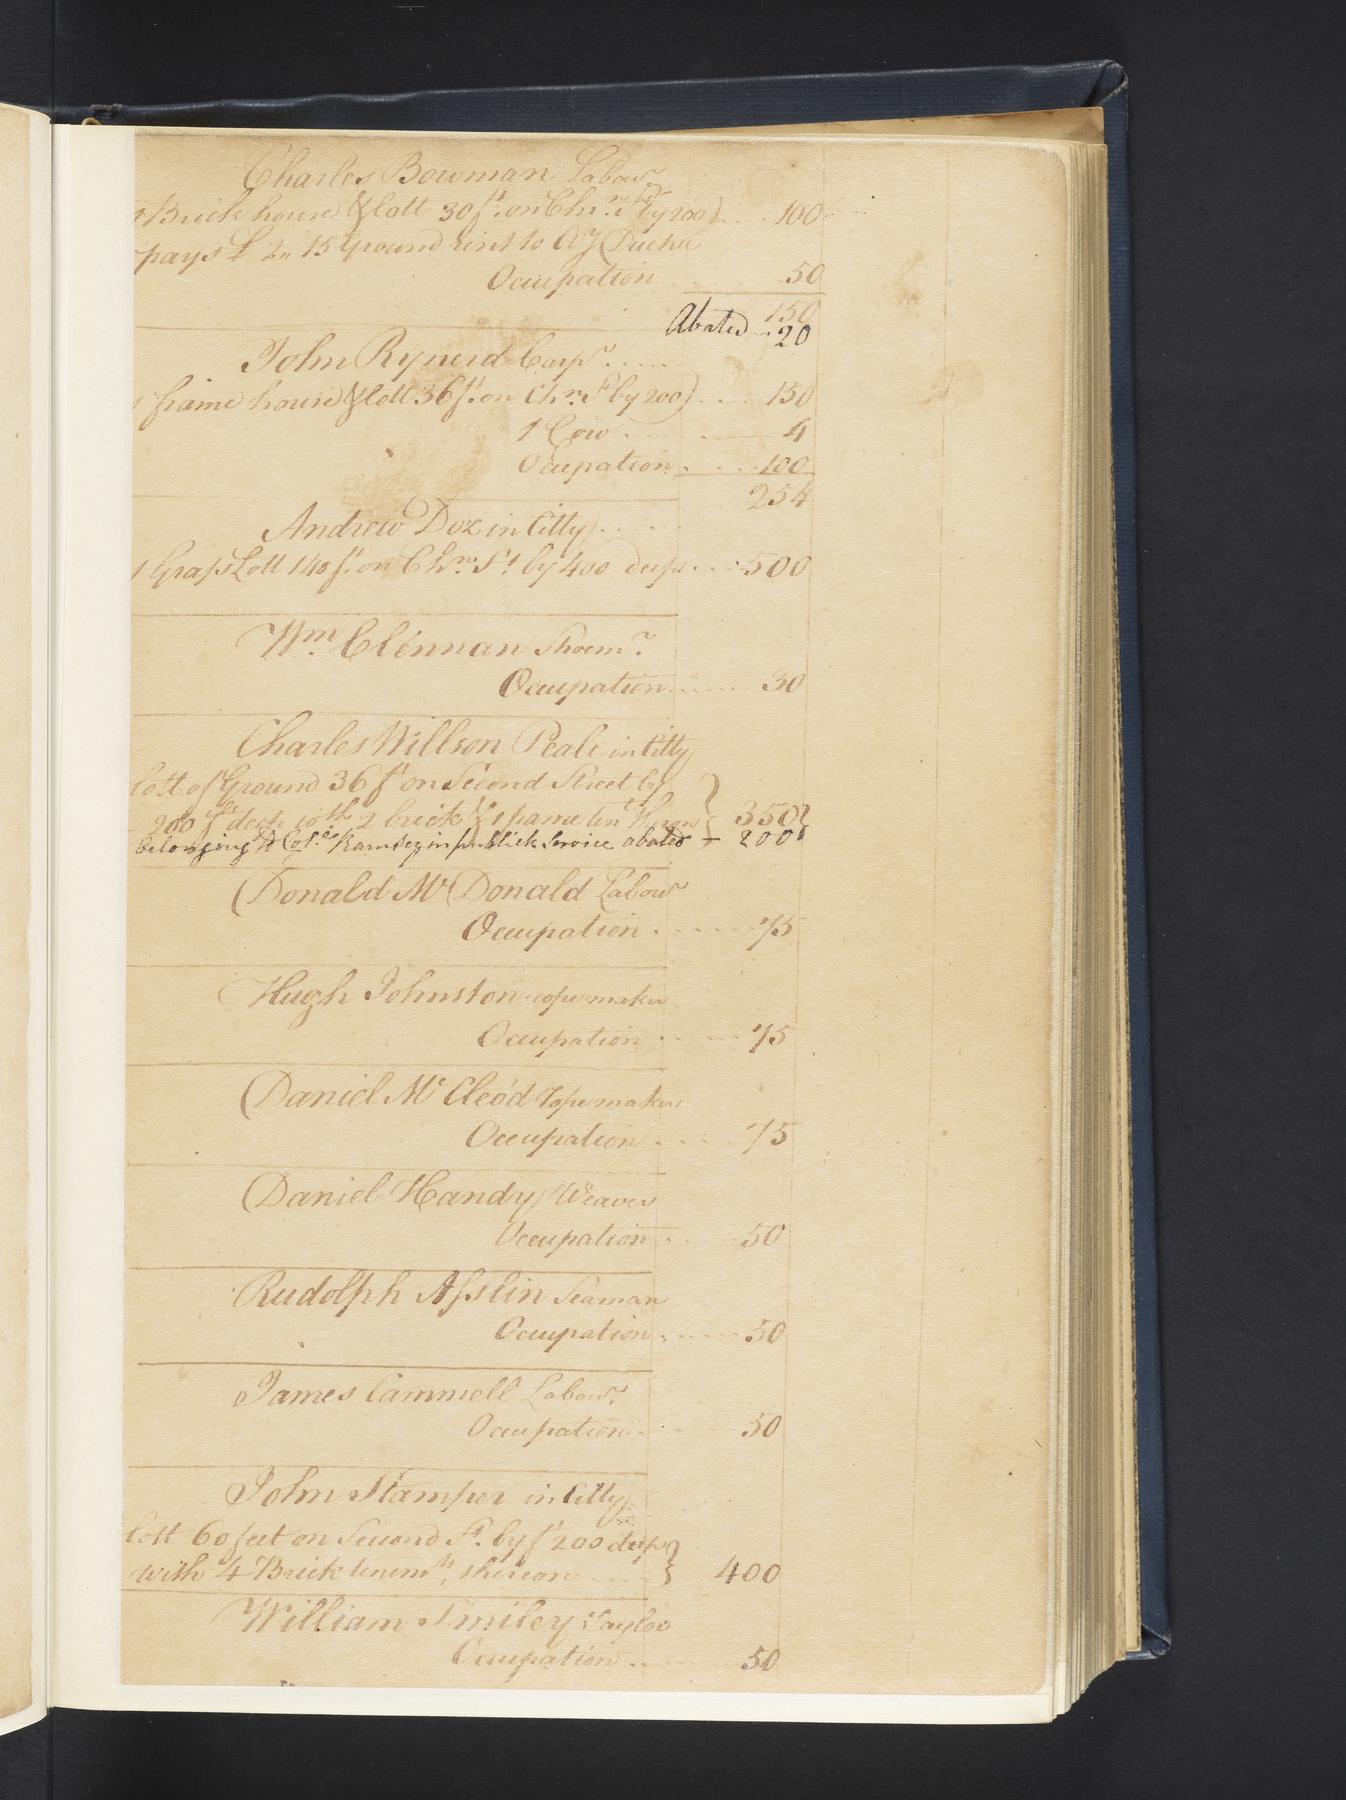 Charles Bowman Labour
1 Brick house & lott 30 ft. on Chrn. St by 200) .... 100
pays £ 2 " 15 Ground rent to A J Duche
Occupation 50
150
Abated .. 20
John Rynerd Carpr .....
1 frame house & lott 36 ft. on Chrn. St by 200) .... 150
1 Cow ..... 4
Ocupation .... 100
254
Andrew Doz in Citty .....
1 Grass Lott 140 ft. on Chrn. St by 400 deep .... 500
Wm. Clennan Shoemr.
Occupation ..... 30
Charles Willson Peale in Citty
lott of Ground 36 ft on Second Street by
200 ft deep with 2 brick & 1 frame tent. thereon } 350
belonging to Col. Ramsey in publick Service abated - 200
Donald Mc Donald Labour
Occupation ..... 75
Hugh Johnston rope maker
Occupation ..... 75
Daniel Mc Cleod Rope maker
Occupation .... 75
Daniel Handy Weaver
Occupation .... 50
Rudolph Asslin Seaman
Occupation ..... 50
James Cammell Labour.
Occupation .... 50
John Stamper in Citty
lott 60 feet on Second St. by ft 200 deep }
with 4 Brick tenemts. thereon .... } 400
William Smiley Taylor
Occupation .... 50